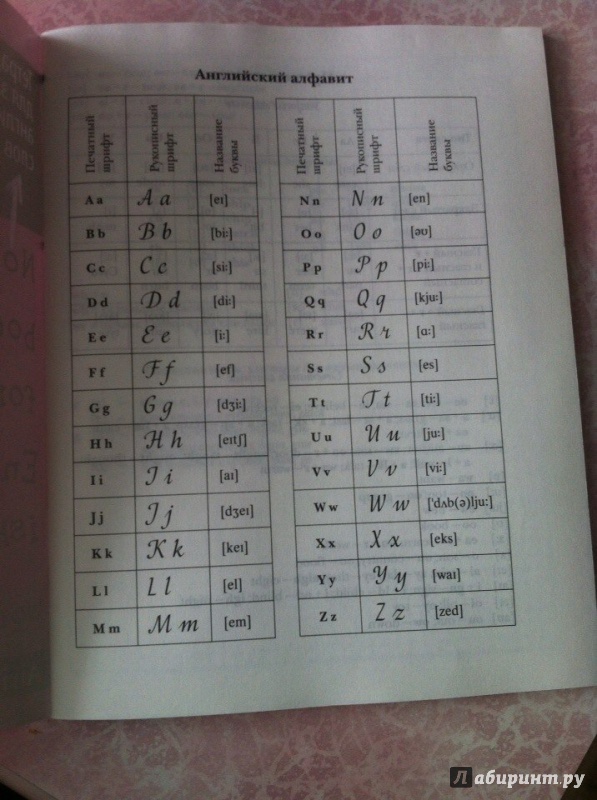 Английский алфавит
Печатный шрифт Рукописный шрифт Название буквы
A a A a [eɪ]
B b B b [bi:]
C c C c [si:]
D d D d [di:]
E e E e [i:]
F f F f [ef]
G g G g [dʒi:]
H h H h [eɪtʃ]
I i I i [aɪ]
J j J j [dʒeɪ]
K k K k [keɪ]
L l L l [el]
M m M m [em]
Печатный шрифт Рукописный шрифт Название буквы
N n N n [en]
O o O o [əʊ]
P p P p [pi:]
Q q Q q [kju:]
R r R r [ɑ:]
S s S s [es]
T t T t [ti:]
U u U u [ju:]
V v V v [vi:]
W w W w ['dʌb(ə)lju:]
X x X x [eks]
Y y Y y [waɪ]
Z z Z z [zed]
Лабиринт.ру